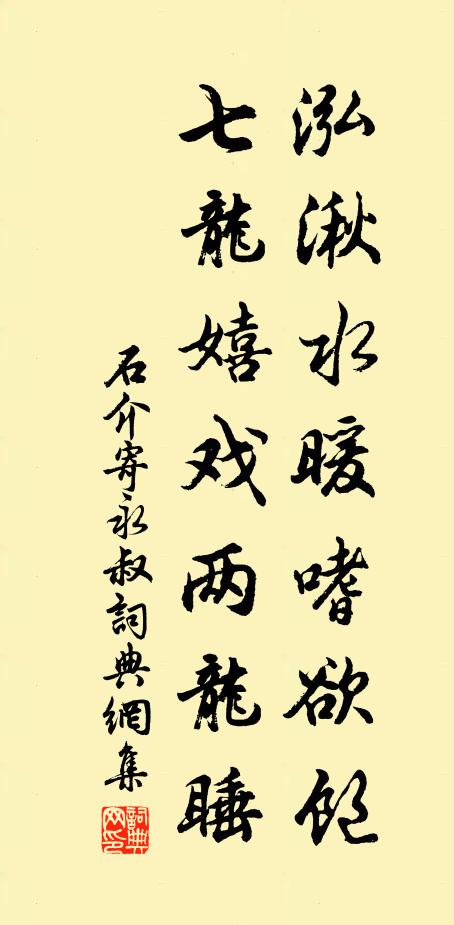 泓湫水暖嗜欲饱
七龍嬉戏两龍睡
石介寄永叔詞典網集
詞典網印